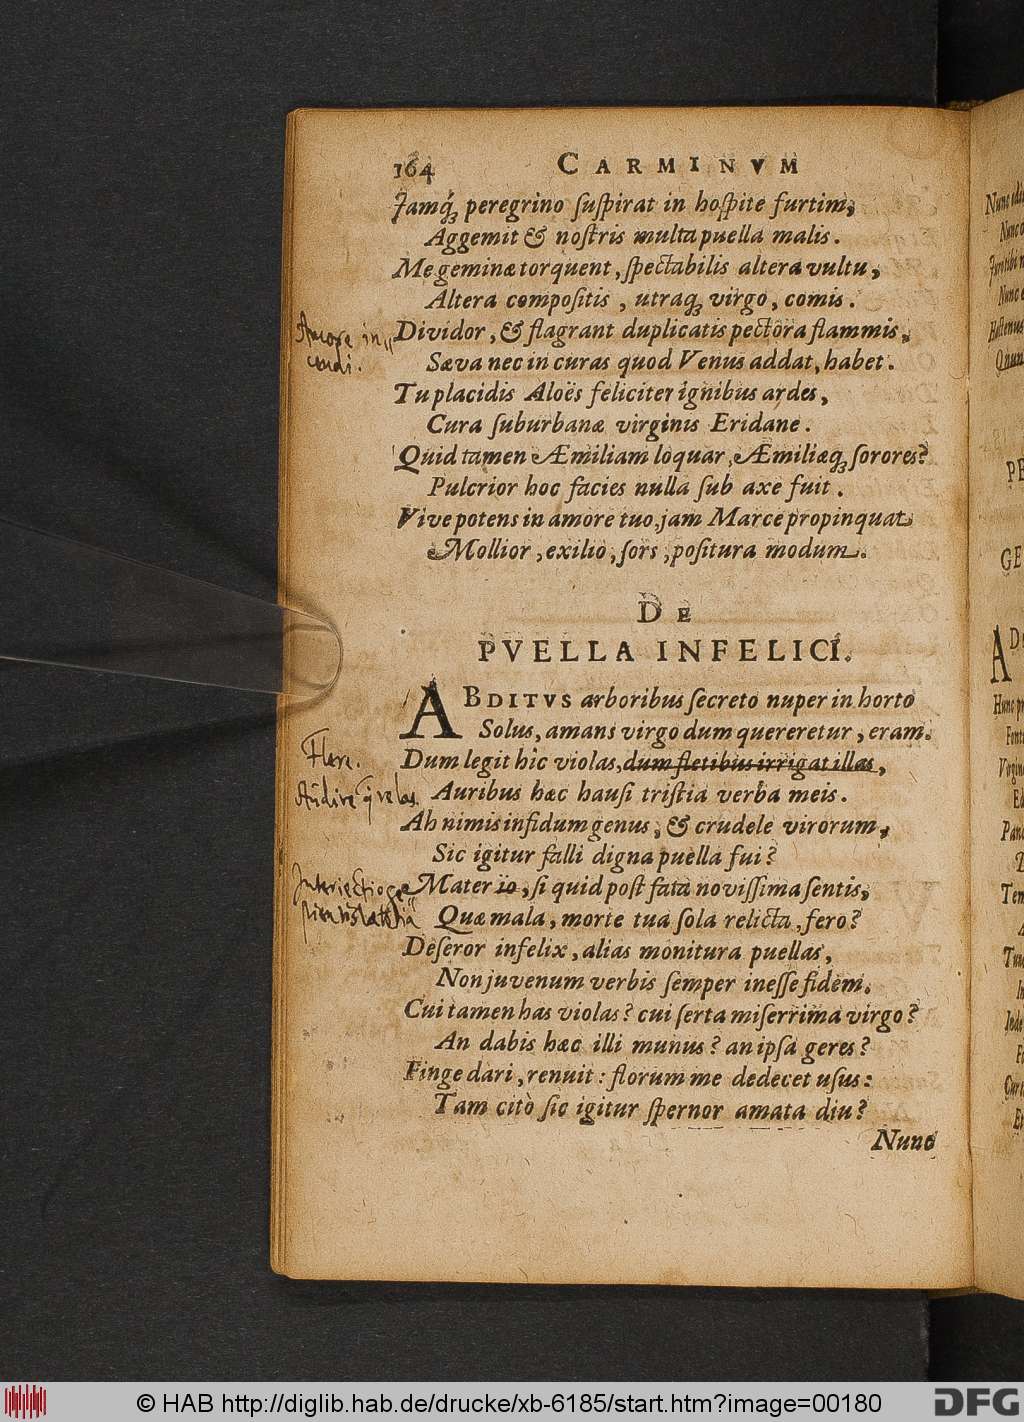 164 CARMINVM
Jamq́; peregrino ſuſpirat in hoſpite furtim,
Aggemit & noſtris multa puella malis.
Me geminæ torquent, ſpectabilis altera vultu,
Altera compoſitis, utraq; virgo, comis.
Amore in-
cendi.
Dividor, & flagrant duplicatis pectora flammis,
Sæva nec in curas quod Venus addat, habet.
Tu placidis Aloës feliciter ignibus ardes,
Cura ſuburbanæ virginis Eridane.
Quid tamen Æmiliam loquar, Æmiliæq; ſorores?
Pulcrior hoc facies nulla ſub axe fuit.
Vive potens in amore tuo, jam Marce propinquat
Mollior, exilio, ſors, poſitura modum.
DE
PVELLA INFELICI.
ABDITVS arboribus ſecreto nuper in horto
Solus, amans virgo dum quereretur, eram.
Flere.
Dum legit hîc violas, dum fletibus irrigat illas,
Audire
Auribus hæc hauſi triſtia verba meis.
Ah nimis infidum genus, & crudele virorum,
Sic igitur falli digna puella fui?
Mater io, ſi quid poſt fata noviſſima ſentis,
Quæ mala, morte tua ſola relicta, fero?
Deſeror infelix, alias monitura puellas,
Non juvenum verbis ſemper ineſſe fidem.
Cui tamen has violas? cui ſerta miſerrima virgo?
An dabis hæc illi munus? an ipſa geres?
Finge dari, renuit: florum me dedecet uſus:
Tam citò ſic igitur ſpernor amata diu?
Nunc
© HAB http://diglib.hab.de/drucke/xb-6185/start.htm?image=00180
DFG